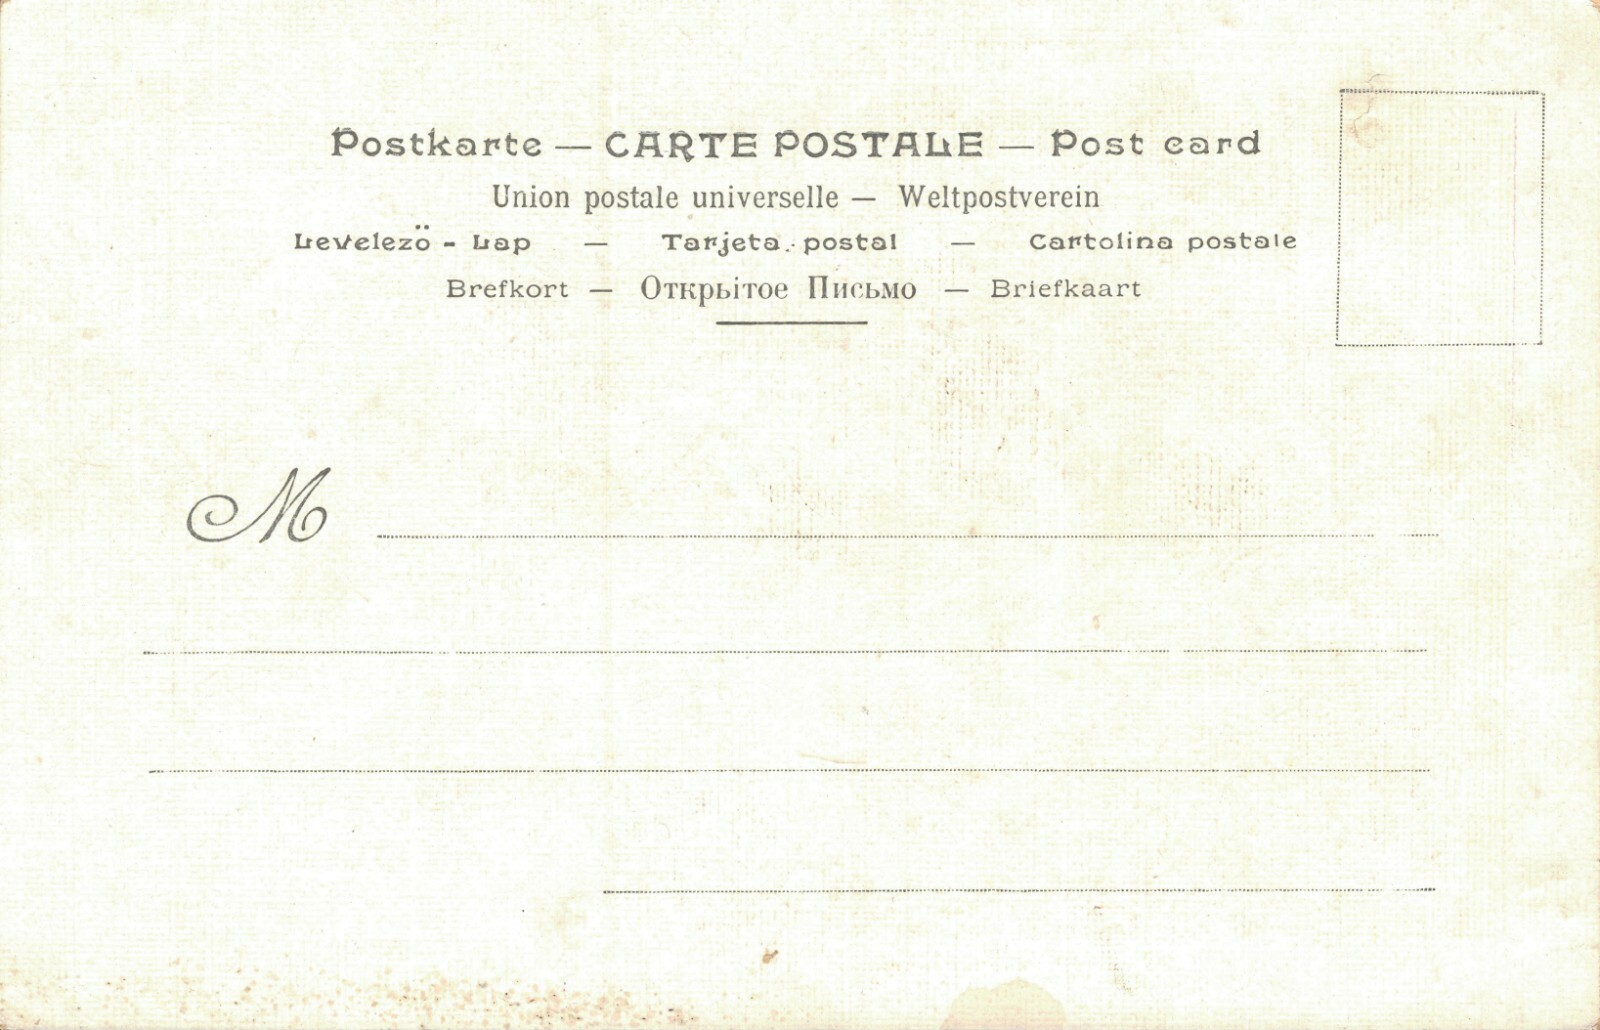 Postkarte — CARTE POSTALE — Post card
Union postale universelle — Weltpostverein
Levelezö - Lap — Tarjeta postal — Cartolina postale
Brefkort — Открьітое Письмо — Briefkaart
M